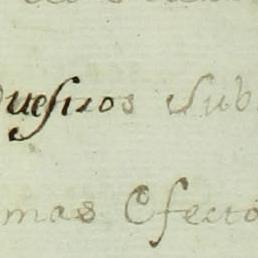 uestros Sub
mas Efecto